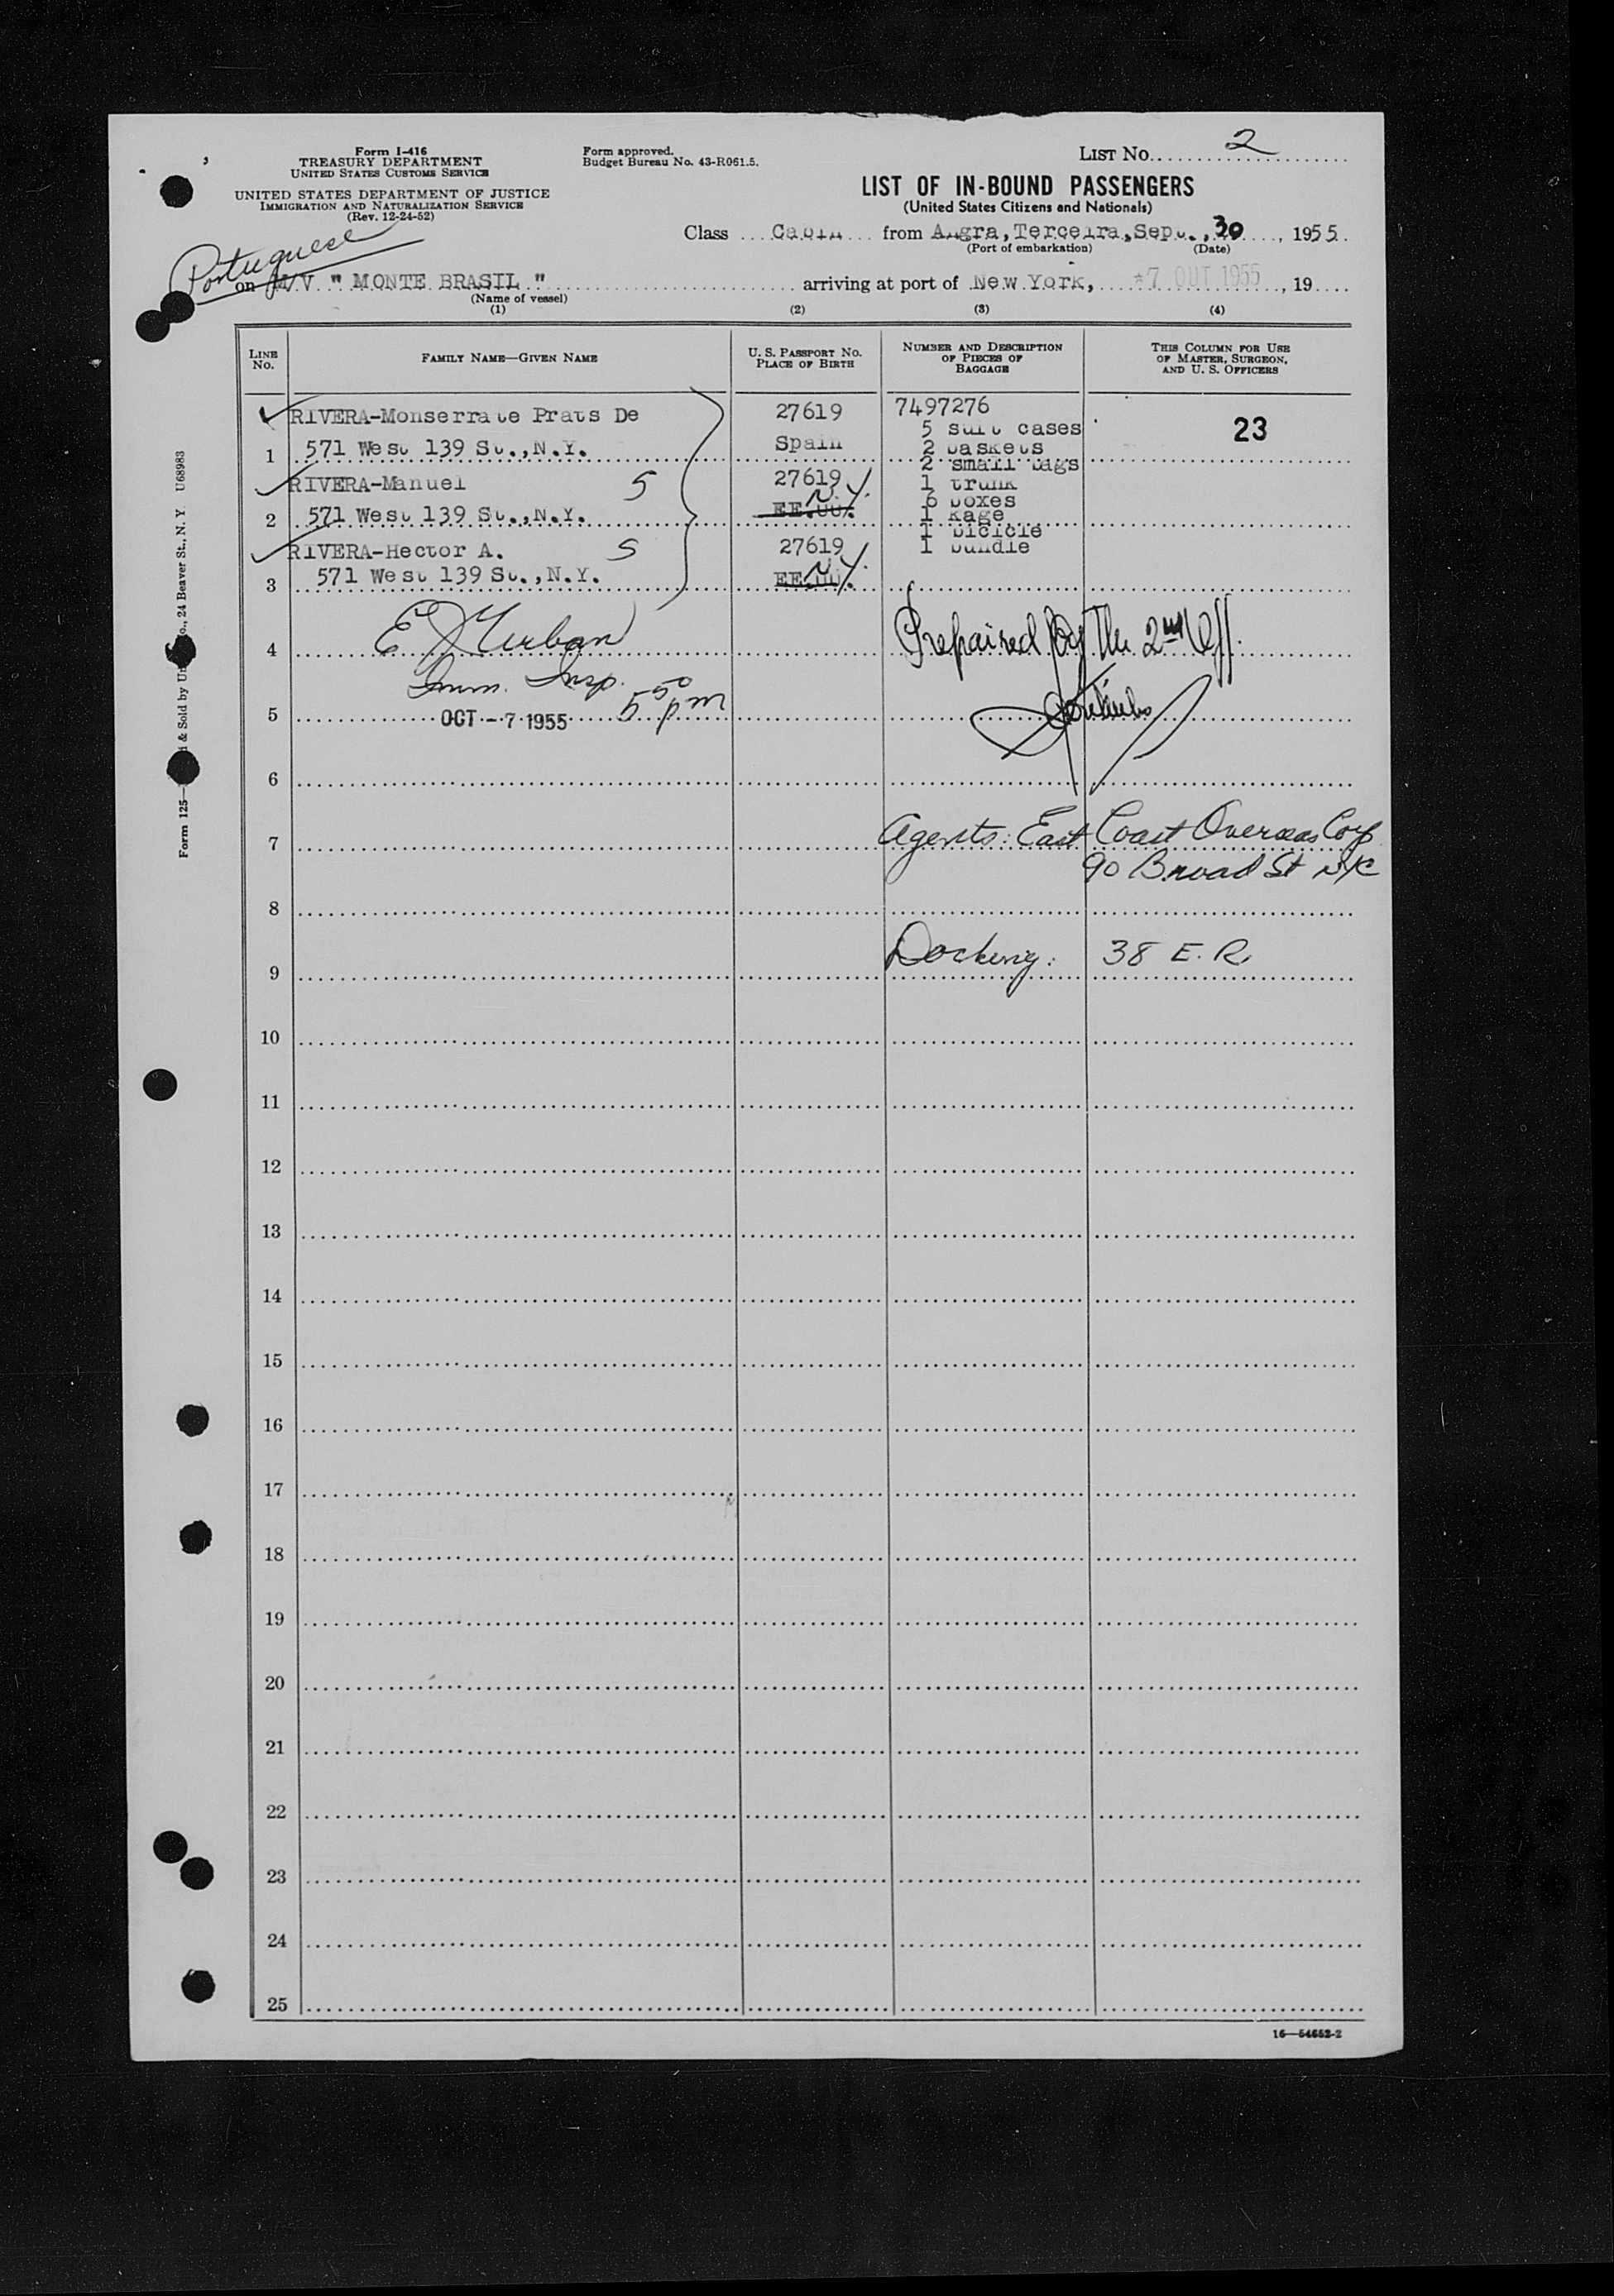 Form I-416
TREASURY DEPARTMENT
UNITED STATES CUSTOMS SERVICE
UNITED STATES DEPARTMENT OF JUSTICE
IMMIGRATION AND NATURALIZATION SERVICE
(Rev. 12-24-52)
Form approved.
Budget Bureau No. 43-R061.5.
LIST No. 2
LIST OF IN-BOUND PASSENGERS
(United States Citizens and Nationals)
Class Cabin from Angra, Terceira, Sept., 30, 1955
(Port of embarkation) (Date)
Portuguese
on M/V " MONTE BRASIL " arriving at port of New York, 7 OUT 1955, 19
(Name of vessel)
(1) (2) (3) (4)
LINE No. FAMILY NAME—GIVEN NAME U. S. PASSPORT No. PLACE OF BIRTH NUMBER AND DESCRIPTION OF PIECES OF BAGGAGE THIS COLUMN FOR USE OF MASTER, SURGEON, AND U. S. OFFICERS
RIVERA-Monserrate Prats De 27619 7497276
5 suit cases 23
1 571 West 139 St.,N.Y. Spain 2 baskets
2 small bags
RIVERA-Manuel 5 27619 1 trunk
6 boxes
2 571 West 139 St.,N.Y. EE.UU. N.Y. 1 kage
1 bicicle
RIVERA-Hector A. 5 27619 1 bundle
3 571 West 139 St.,N.Y. EE.UU. N.Y.
4 Prepaired by The 2nd Off.
Imm. Insp.
5 OCT -7 1955
6
7 Agents: East Coast Overseas Corp
90 Broad St NYC
8
9 Docking: 38 E. R.
10
11
12
13
14
15
16
17
18
19
20
21
22
23
24
25
16—54652-2
Form 125— & Sold by Un Co., 24 Beaver St., N. Y. U68983